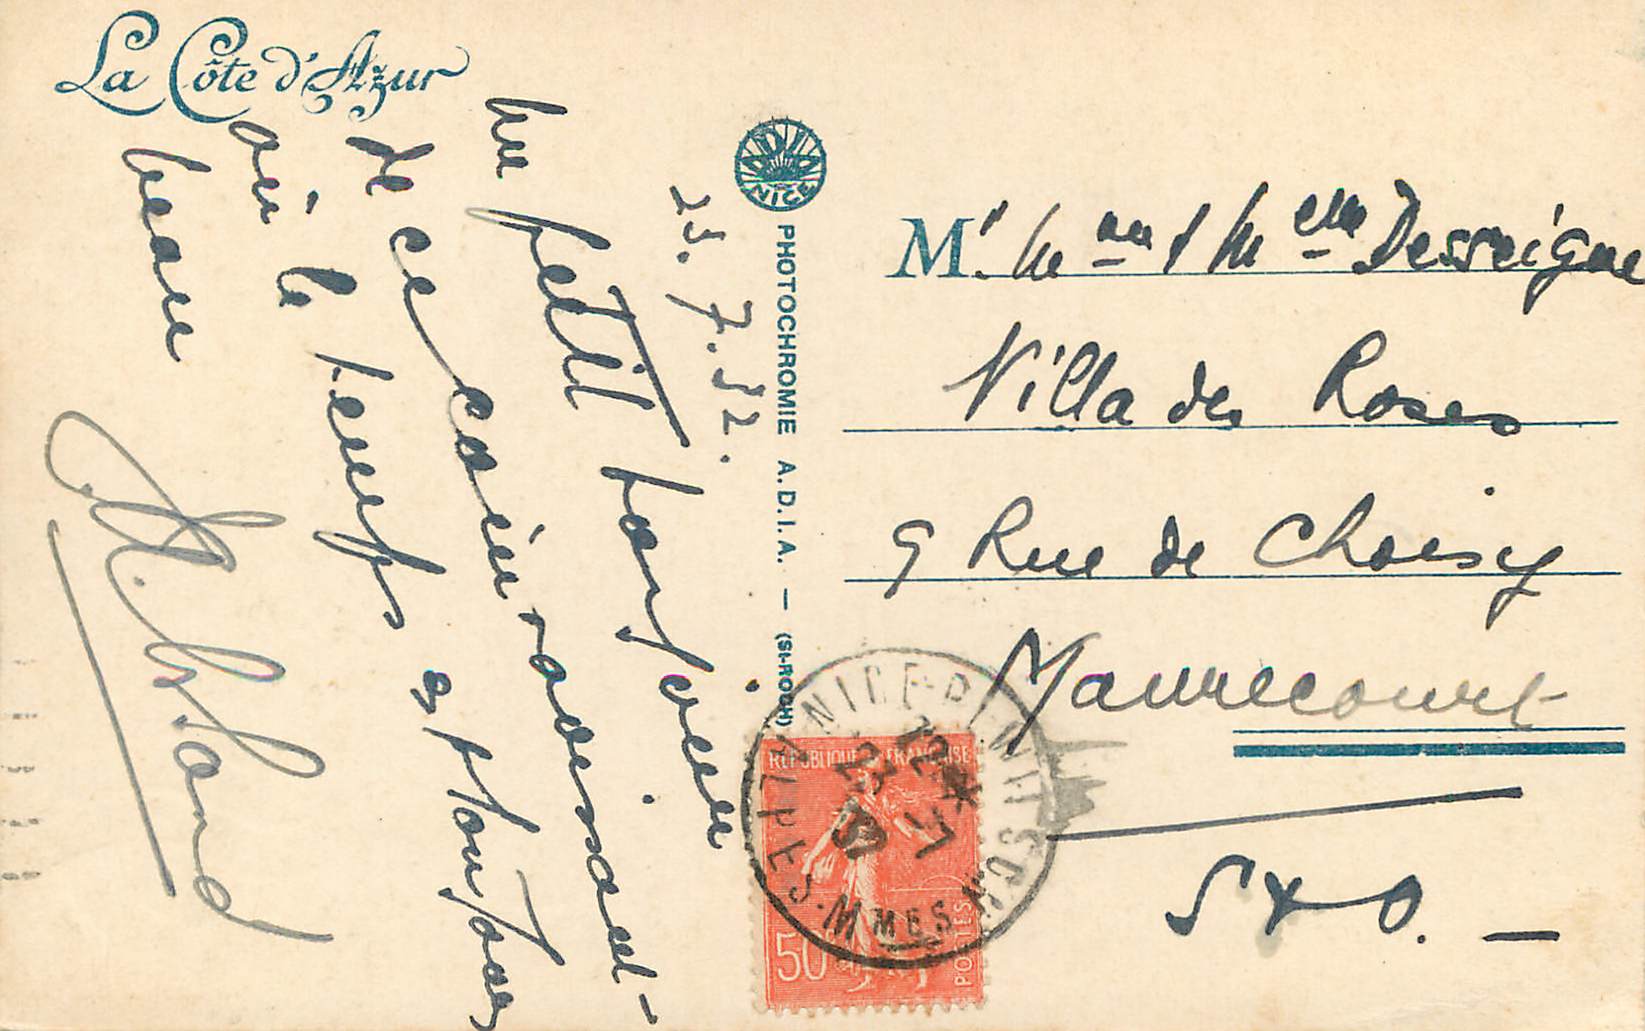 La Côte d'Azur
25.7.32.
Un petit bonjour
de ce coin ravissant -
où le temps est toujours
beau
ADIA NICE
PHOTOCHROMIE A.D.I.A. — (St-ROCH)
M. Mme & Melle Desseigne
Villa des Roses
9 Rue de Choisy
Maurecourt
S & O. —
REPUBLIQUE FRANÇAISE
50c
POSTES
12* 
23 -7
32
ALPES-MMES